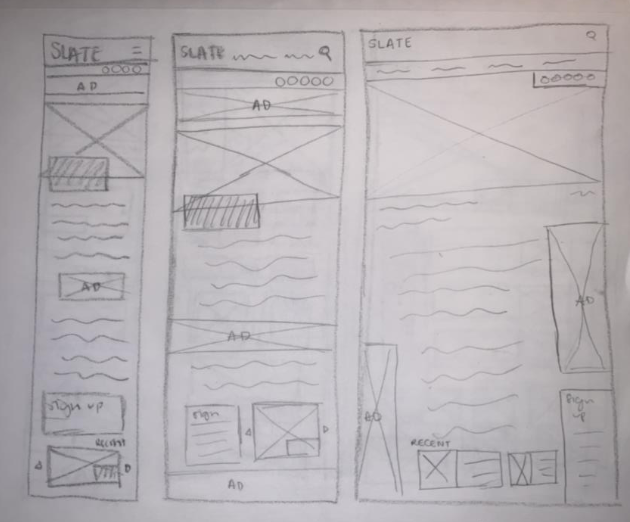 SLATE
AD
AD
Sign up
RECENT
SLATE
AD
AD
Sign
AD
SLATE
AD
AD
RECENT
Sign
up